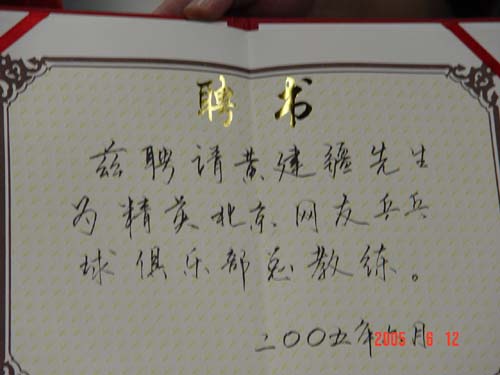 聘书
兹聘请黄建疆先生
为精英北京网友乒乓
球俱乐部总教练。
二〇〇五年六月
2005 6 12